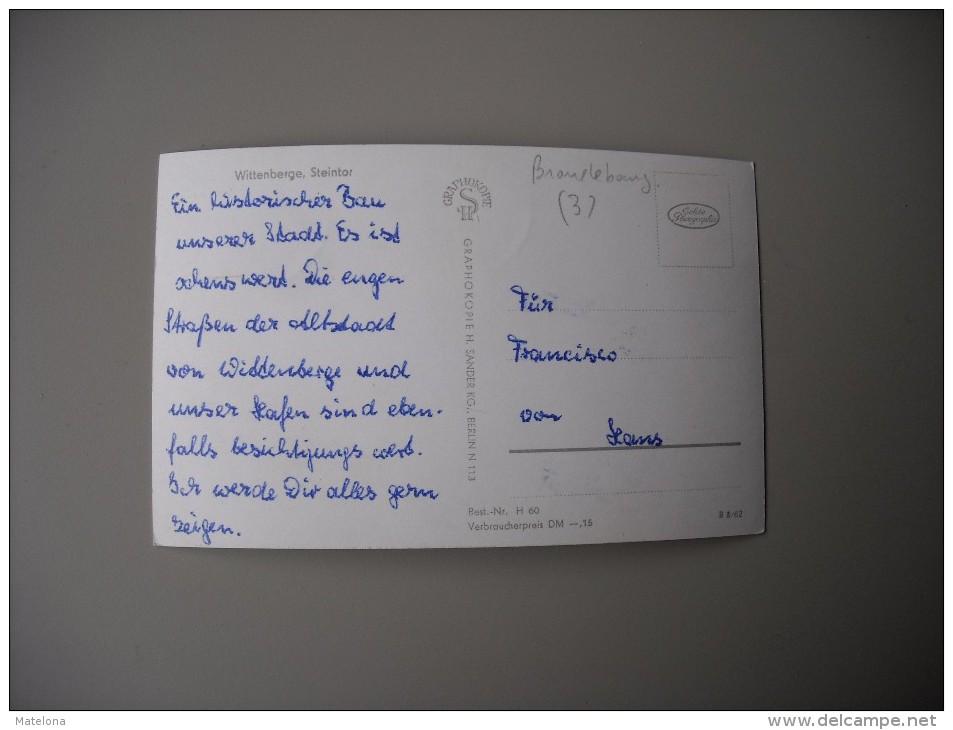 Wittenberge, Steintor
Ein historischer Bau
unserer Stadt. Es ist
sehenswert. Die engen
Straßen der Altstadt
von Wittenberge und
unser Hafen sind eben-
falls besichtigungswert.
Ich werde Dir alles gern
zeigen.
GRAPHOKOPIE
GRAPHOKOPIE H. SANDER KG., BERLIN N 113
Brandebourg
(3)
Echte
Photographie
Für
Francisco
von
Hans
Best.-Nr. H 60
Verbraucherpreis DM —,15
B 8/62
Matelona
www.delcampe.net